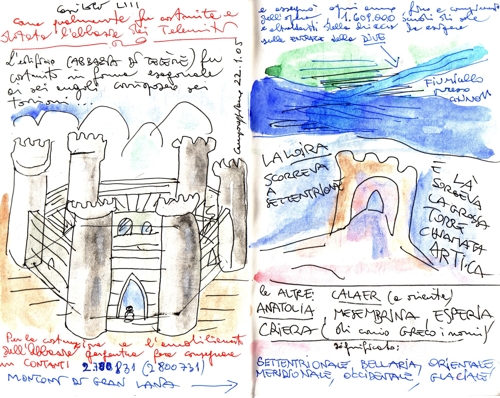 Capitolo LIII
come parlamento fu costruita e
dotata l'abbazia dei Telemiti
L'edificio (ABBAZIA DI TELEME) fu
costruito in forma esagonale
ai sei angoli comparvero sei
torrioni...
Campoggialno 22.1.05
Per la costruzione e l'ammobiliamento
dell'Abbazia Gargantua fece consegnare
in CONTANTI 2700831 (2800731)
MONTONI DI GRAN LANA
e assegnò ogni anno fino a compiuta
dell'opera 1.609.000 scudi al sole
sulle entrate della DIVE
FIUMICELLO
presso
LA LOIRA
SCORREVA
A
SETTENTRIONE
E LÀ
SORGEVA
LA GROSSA
TORRE
CHIAMATA
ARTICA
le ALTRE: CALAER (a oriente)
ANATOLIA, MESEMBRINA, ESPERIA
CRIERA (di conio GRECO i nomi)
significato:
SETTENTRIONALE, BELLARIA, ORIENTALE
MERIDIONALE, OCCIDENTALE, GLACIALE